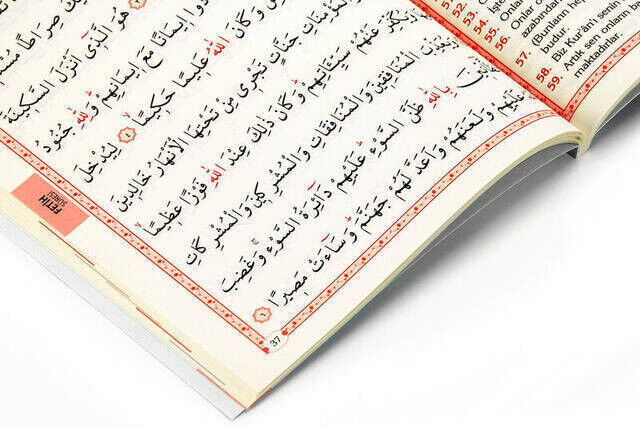 صِرَاطًا
هُوَ الَّذِي أَنْزَلَ السَّكِينَةَ
إِيمَانًا مَعَ إِيمَانِهِمْ وَلِلّٰهِ جُنُودُ
وَكَانَ اللّٰهُ عَلِيمًا حَكِيمًا ٤ لِيُدْخِلَ
جَنَّاتٍ تَجْرِي مِنْ تَحْتِهَا الْأَنْهَارُ خَالِدِينَ
عَنْهُمْ سَيِّئَاتِهِمْ وَكَانَ ذٰلِكَ عِنْدَ اللّٰهِ فَوْزًا عَظِيمًا
الْمُنَافِقِينَ وَالْمُنَافِقَاتِ وَالْمُشْرِكِينَ وَالْمُشْرِكَاتِ
بِاللّٰهِ ظَنَّ السَّوْءِ عَلَيْهِمْ دَائِرَةُ السَّوْءِ وَغَضِبَ
عَلَيْهِمْ وَلَعَنَهُمْ وَأَعَدَّ لَهُمْ جَهَنَّمَ وَسَاءَتْ مَصِيرًا ٦
FETİH
SÛRESİ
37
52.
53.
54.
55. Onlar
56. azabından
57. (Bunların hep
budur.
58. Biz Kur'ân'ı senin
59. Artık sen onların
maktadırlar.